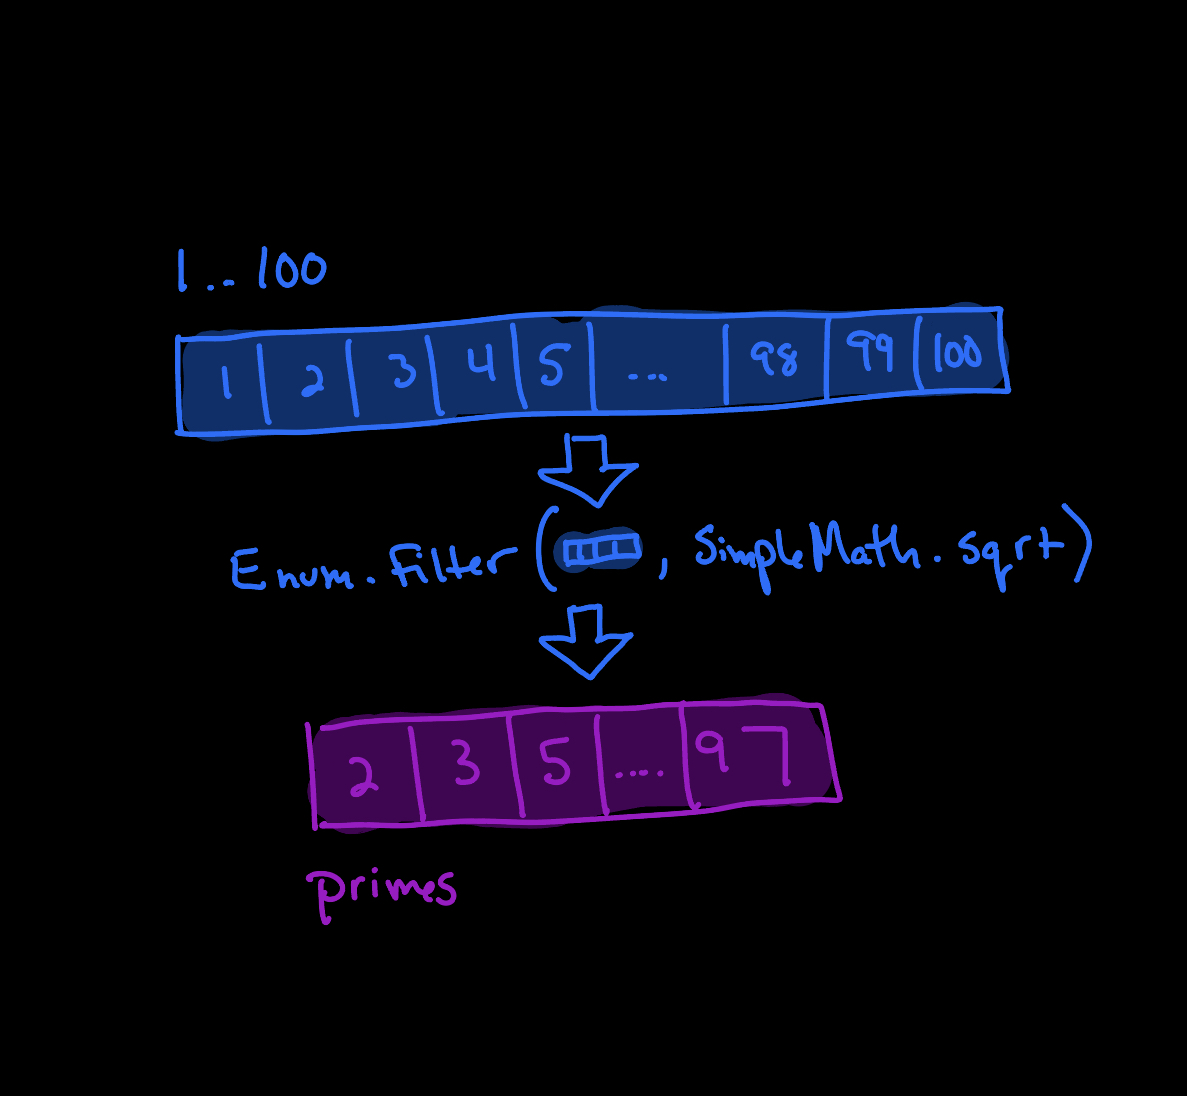 1...100
1 2 3 4 5 ... 98 99 100
Enum.filter( , SimpleMath.sqrt)
2 3 5 .... 97
primes